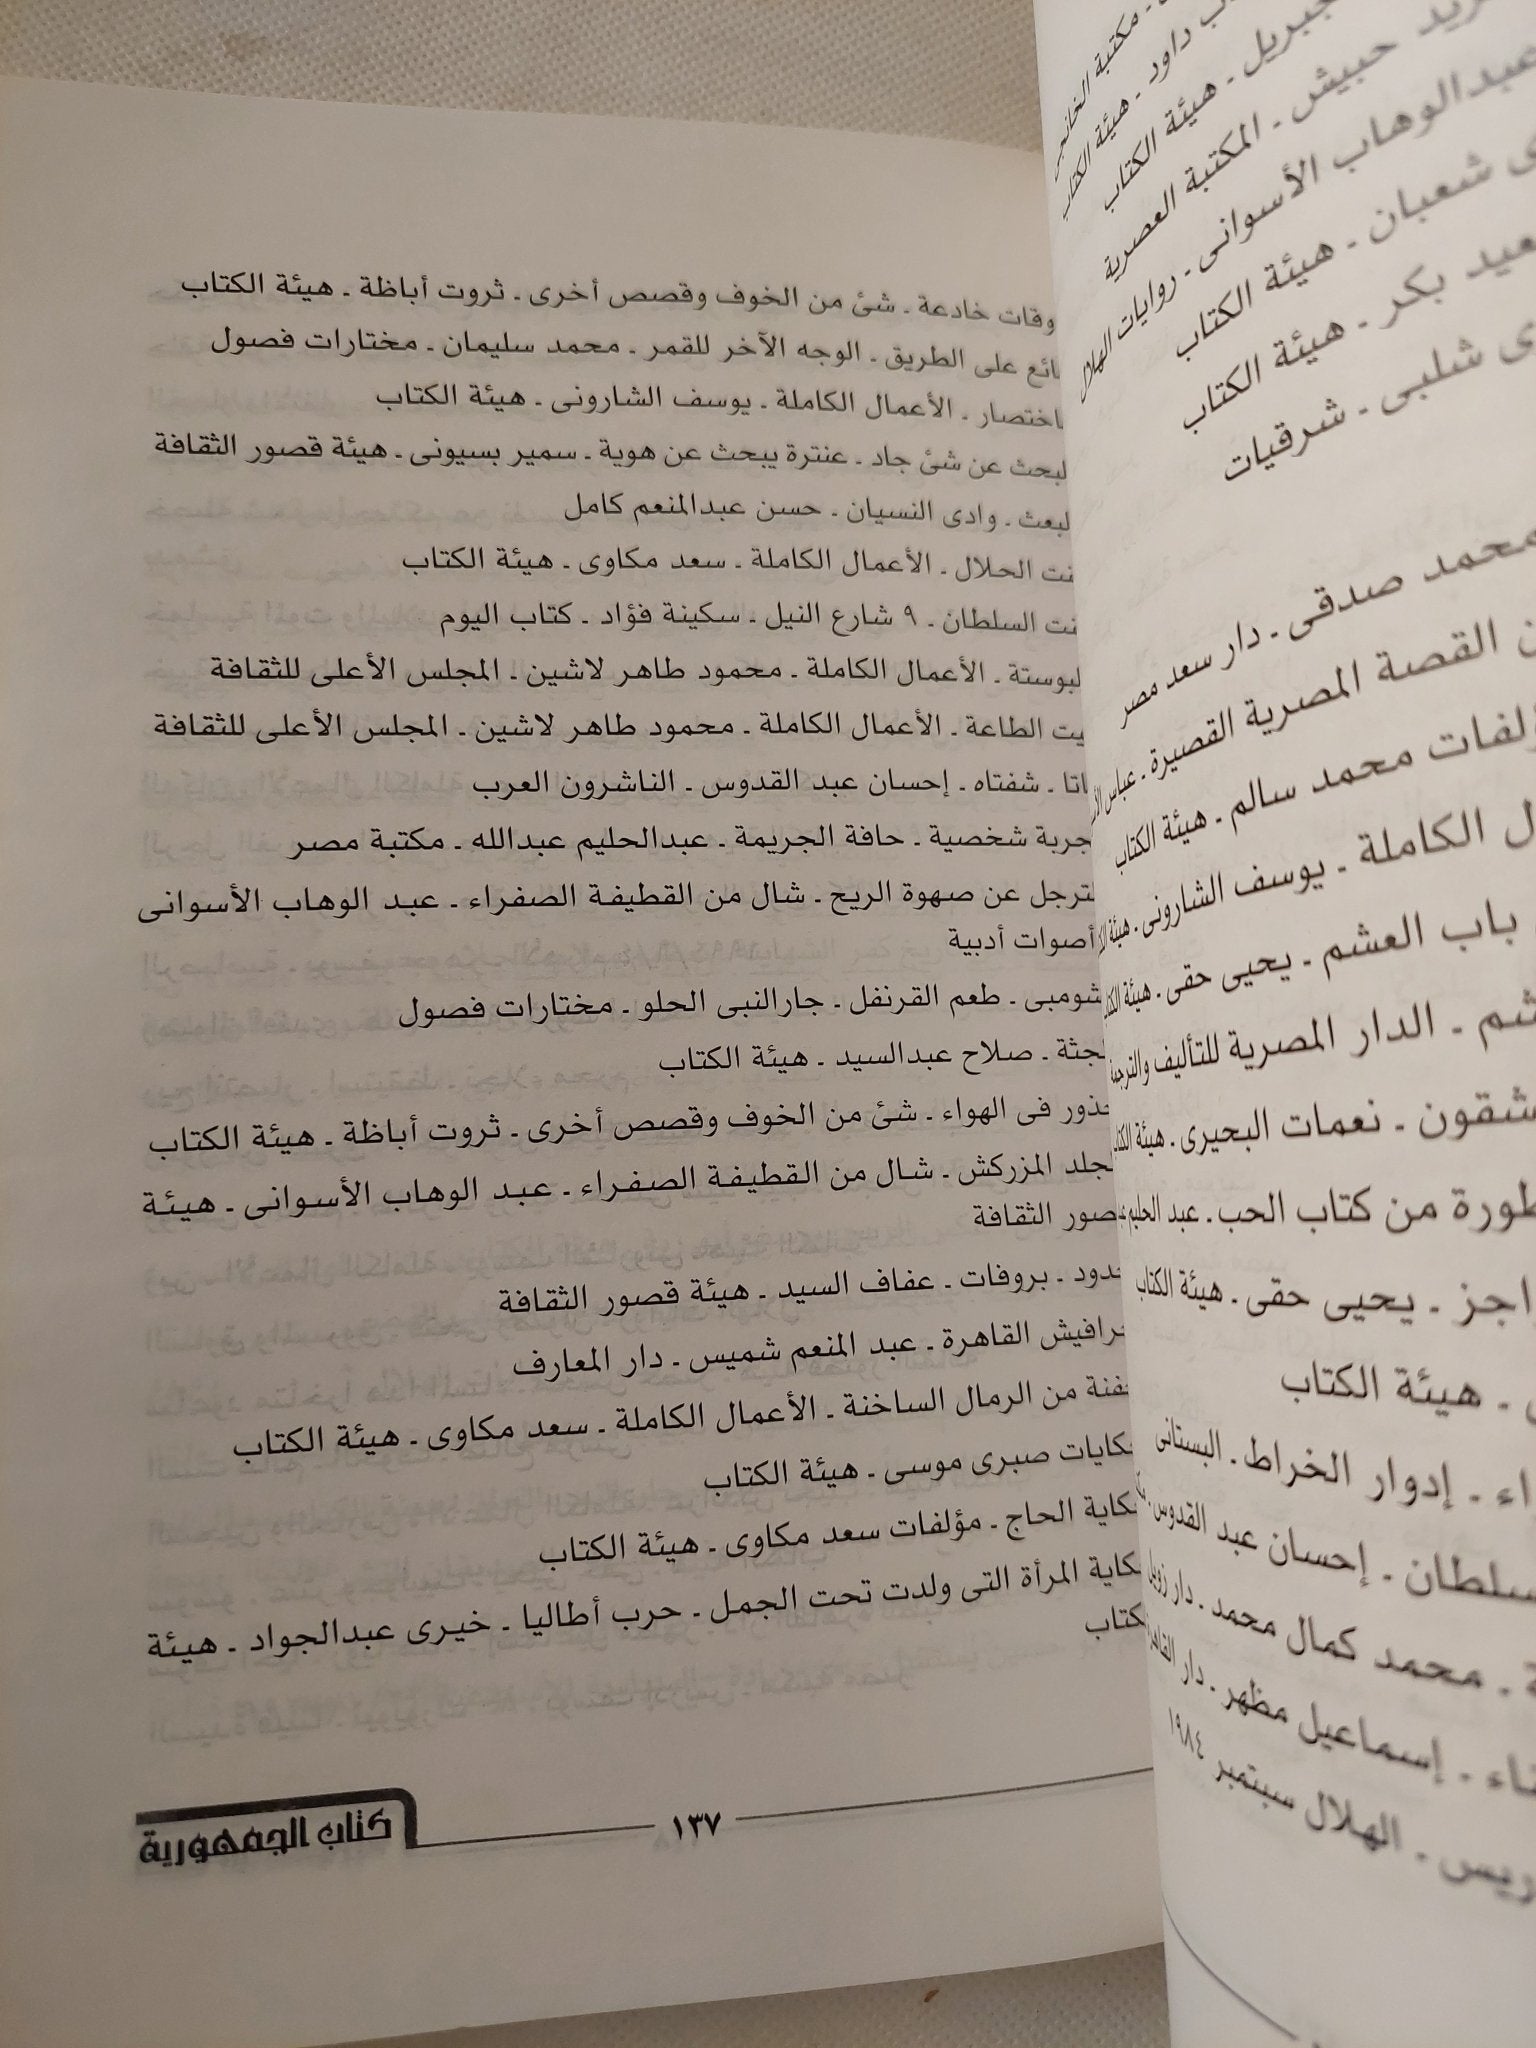 مكتبة الخانجى
داود ـ هيئة الكتاب
جبريل ـ هيئة الكتاب
حبيش ـ المكتبة العصرية
عبدالوهاب الأسوانى ـ روايات الهلال
شعبان ـ هيئة الكتاب
بكر ـ هيئة الكتاب
شلبى ـ شرقيات
محمد صدقى ـ دار سعد مصر
القصة المصرية القصيرة ـ عباس
محمد سالم ـ هيئة الكتاب
الكاملة ـ يوسف الشارونى ـ هيئة
باب العشم ـ يحيى حقى ـ هيئة
ـ الدار المصرية للتأليف والترجمة
ـ نعمات البحيرى ـ هيئة
من كتاب الحب ـ عبد الحليم
ـ يحيى حقى ـ هيئة الكتاب
ـ هيئة الكتاب
ـ إدوار الخراط ـ البستانى
ـ إحسان عبد القدوس
ـ محمد كمال محمد ـ دار
ـ إسماعيل مظهر ـ دار
ـ الهلال سبتمبر ١٩٨٤
خادعة ـ شئ من الخوف وقصص أخرى ـ ثروت أباظة ـ هيئة الكتاب
على الطريق ـ الوجه الآخر للقمر ـ محمد سليمان ـ مختارات فصول
باختصار ـ الأعمال الكاملة ـ يوسف الشارونى ـ هيئة الكتاب
عن شئ جاد ـ عنترة يبحث عن هوية ـ سمير بسيونى ـ هيئة قصور الثقافة
ـ وادى النسيان ـ حسن عبدالمنعم كامل
الحلال ـ الأعمال الكاملة ـ سعد مكاوى ـ هيئة الكتاب
السلطان ـ ٩ شارع النيل ـ سكينة فؤاد ـ كتاب اليوم
ـ الأعمال الكاملة ـ محمود طاهر لاشين ـ المجلس الأعلى للثقافة
الطاعة ـ الأعمال الكاملة ـ محمود طاهر لاشين ـ المجلس الأعلى للثقافة
ـ شفتاه ـ إحسان عبد القدوس ـ الناشرون العرب
شخصية ـ حافة الجريمة ـ عبدالحليم عبدالله ـ مكتبة مصر
عن صهوة الريح ـ شال من القطيفة الصفراء ـ عبد الوهاب الأسوانى
أصوات أدبية
ـ طعم القرنفل ـ جارالنبى الحلو ـ مختارات فصول
ـ صلاح عبدالسيد ـ هيئة الكتاب
فى الهواء ـ شئ من الخوف وقصص أخرى ـ ثروت أباظة ـ هيئة الكتاب
المزركش ـ شال من القطيفة الصفراء ـ عبد الوهاب الأسوانى ـ هيئة
الثقافة
ـ بروفات ـ عفاف السيد ـ هيئة قصور الثقافة
القاهرة ـ عبد المنعم شميس ـ دار المعارف
من الرمال الساخنة ـ الأعمال الكاملة ـ سعد مكاوى ـ هيئة الكتاب
صبرى موسى ـ هيئة الكتاب
الحاج ـ مؤلفات سعد مكاوى ـ هيئة الكتاب
المرأة التى ولدت تحت الجمل ـ حرب أطاليا ـ خيرى عبدالجواد ـ هيئة
١٣٧
كتاب الجمهورية